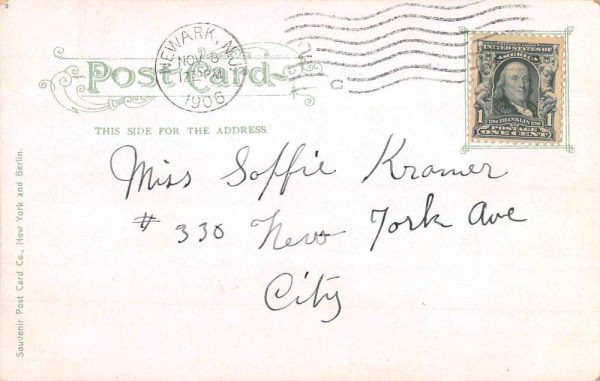 NEWARK, N.J.
NOV 8
1906
Post Card
THIS SIDE FOR THE ADDRESS.
UNITED STATES OF AMERICA
FRANKLIN
1 1
POSTAGE
ONE CENT
Miss Soffie Kramer
# 330 New York Ave
City
Souvenir Post Card Co., New York and Berlin.